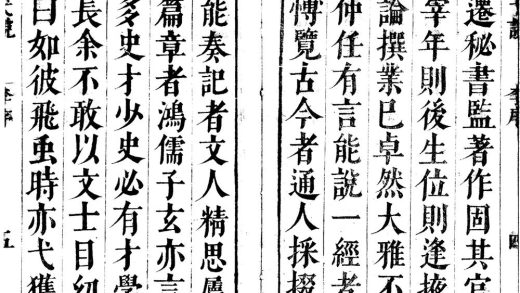 遷秘書監著作固其官
宰年則後生位則逢掖
論撰業巳卓然大雅不
仲任有言能說一經者
愽覽古今者通人採掇
能奏記者文人精思屬
篇章者鴻儒子玄亦言
多史才少史必有才學
長余不敢以文士目
曰如彼飛虫時亦弋獲
李序 五